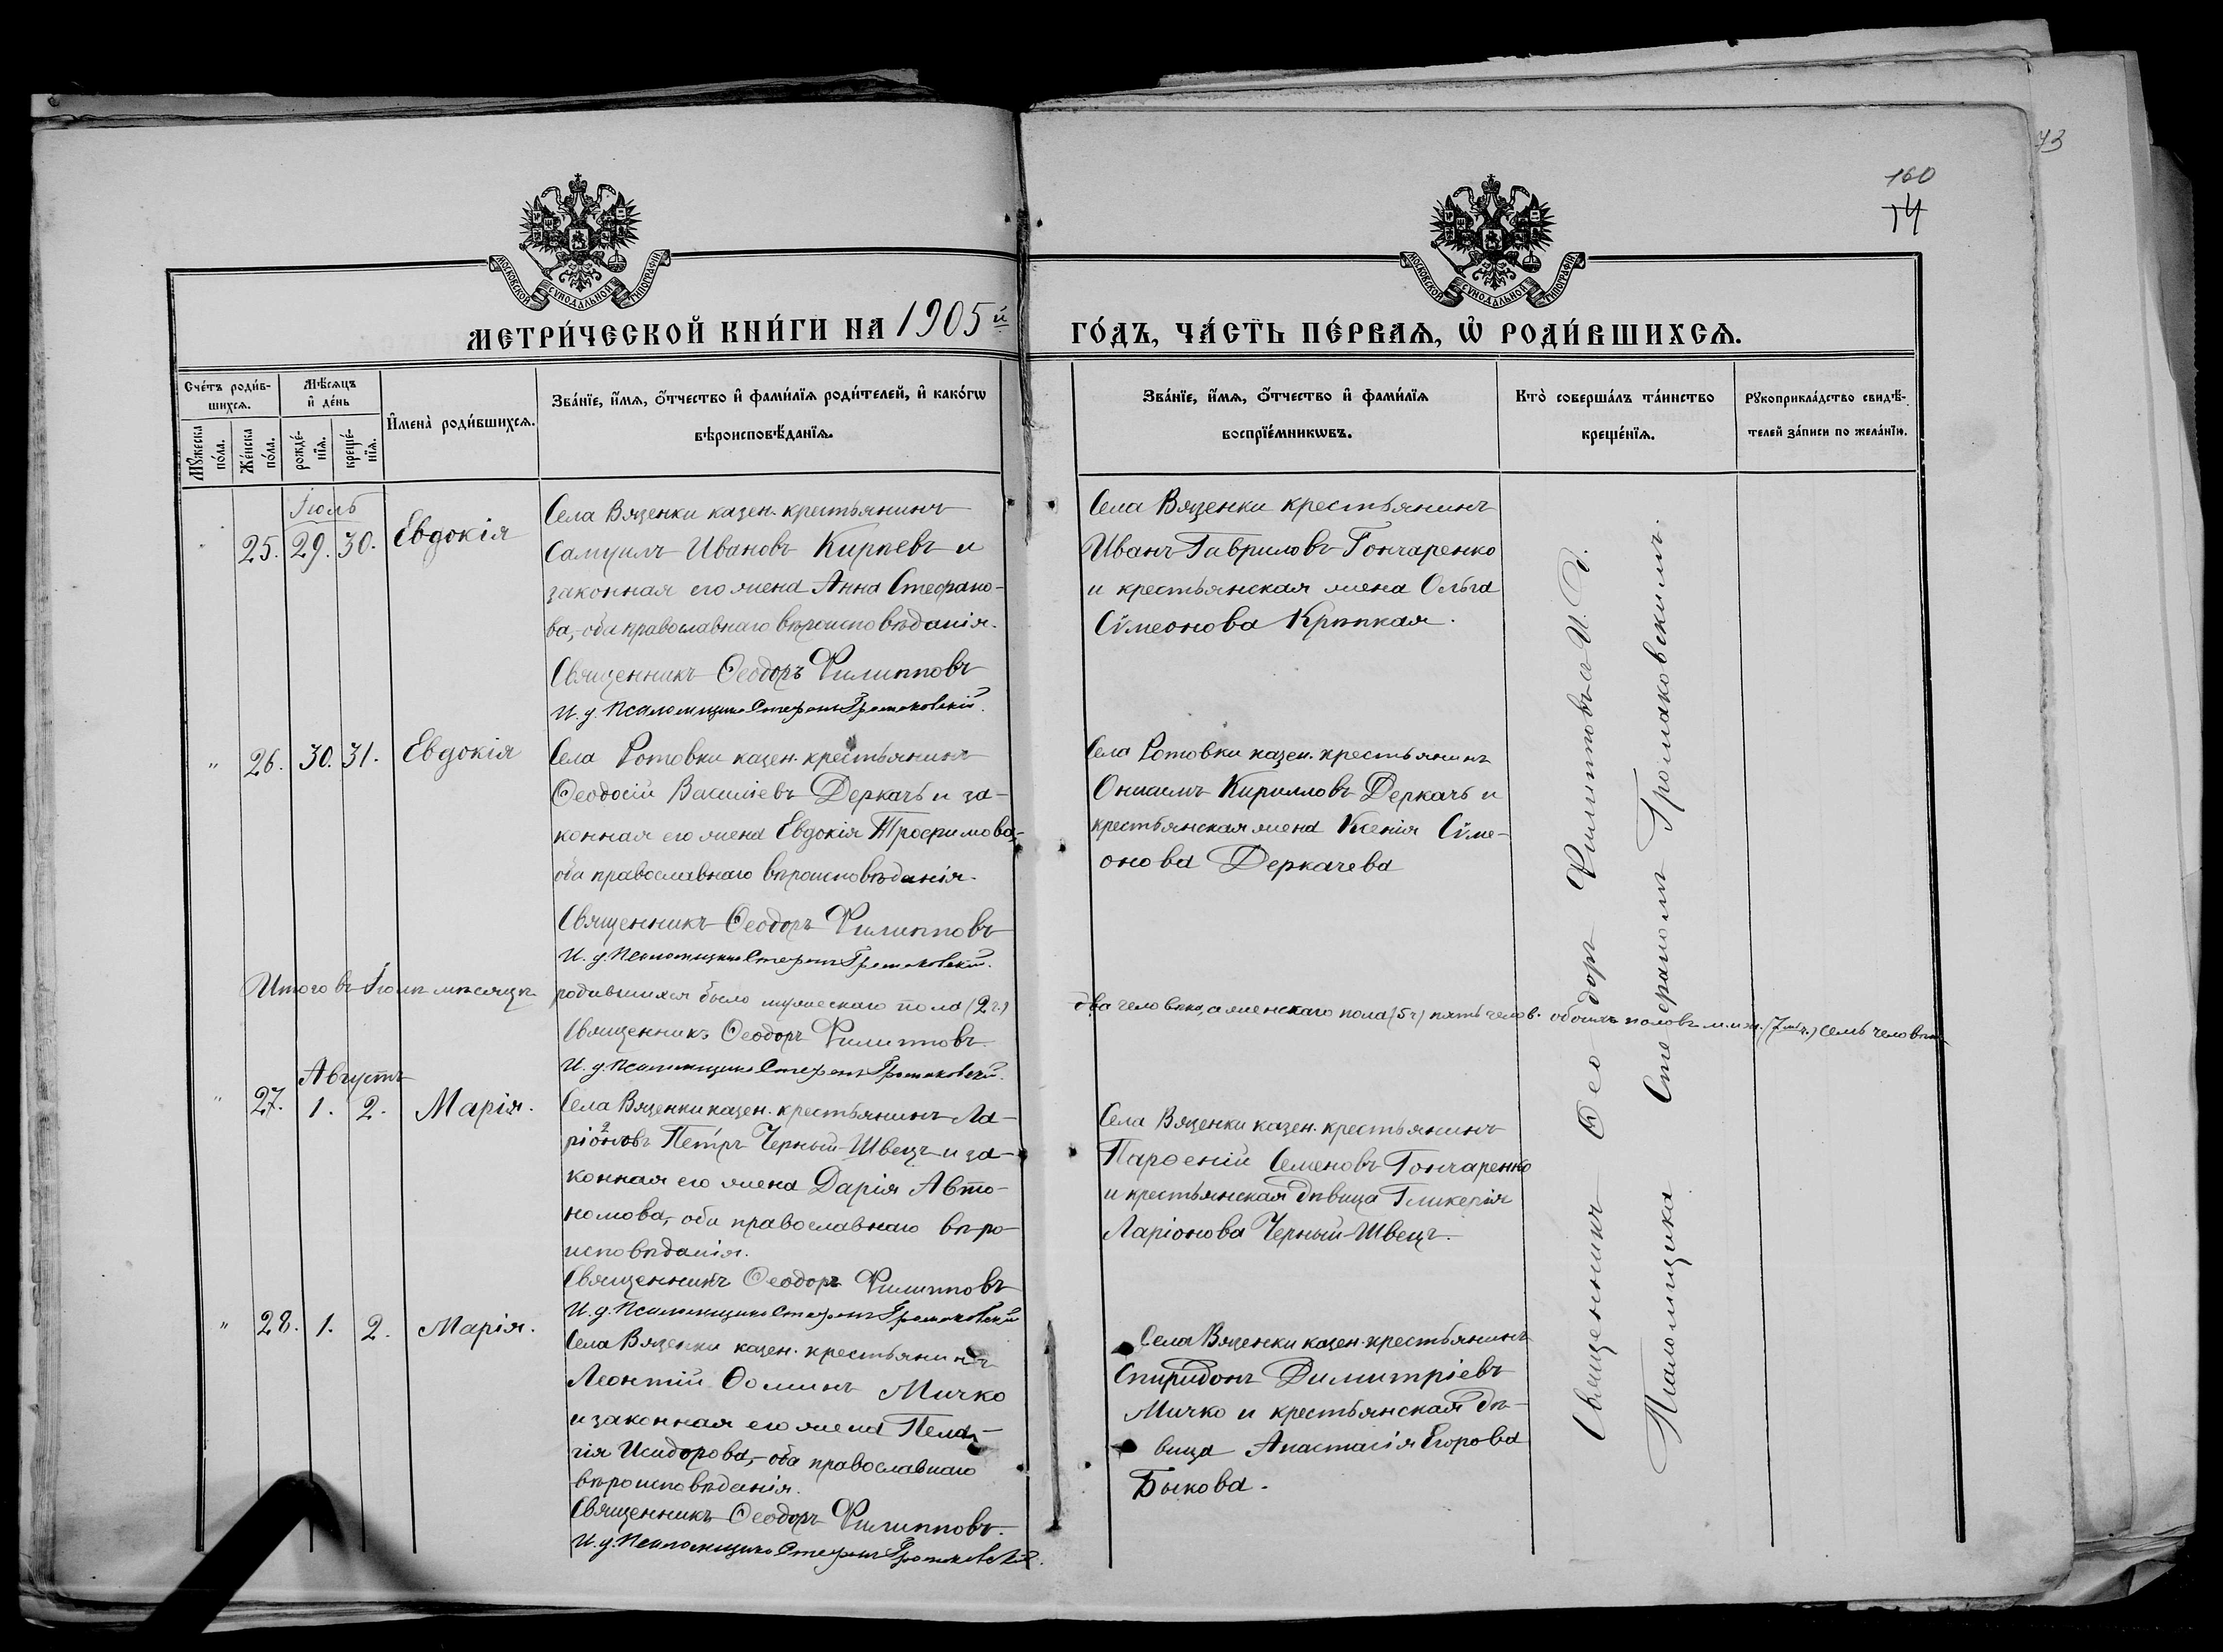 73
160
74
МОСКОВСКОЙ СѴНОДАЛЬНОЙ ТИПОГРАФІИ
МОСКОВСКОЙ СѴНОДАЛЬНОЙ ТИПОГРАФІИ
МЕТРИ́ЧЕСКОЙ КНИ́ГИ НА 1905й
ГО́ДЪ, ЧА́СТЬ ПЕ́РВАѦ, Ѡ҆ РОДИ́ВШИХСѦ.
Сче́тъ роди́в-
шихсѧ.
Мꙋ́жеска по́ла.
Же́нска по́ла.
Мѣ́сѧцъ
и҆ де́нь
рожде́-
нїѧ.
креще́-
нїѧ.
И҆мена̀ роди́вшихсѧ.
Зва́нїе, и҆́мѧ, ѻ҆́тчество и҆ фами́лїѧ роди́телей, и҆ како́гѡ
вѣроисповѣ́данїѧ.
Зва́нїе, и҆́мѧ, ѻ҆́тчество и҆ фами́лїѧ
воспрїе́мникѡвъ.
Кто̀ соверша́лъ та́инство
креще́нїѧ.
Рꙋкоприкла́дство свидѣ́-
телей за́писи по жела́нїю.
Іюль
25. 29. 30. Евдокія
Села Вязенки казен. крестьянинъ
Самуилъ Ивановъ Кирѣевъ и
законная его жена Анна Стефано-
ва,- оба православнаго вѣроисповѣданія.
Священникъ Ѳеодоръ Филипповъ
И. д. Псаломщика Стефанъ Громаковскій.
Села Вязенки крестьянинъ
Иванъ Гавриловъ Гончаренко
и крестьянская жена Ольга
Сѵмеонова Крѣпкая.
" 26. 30. 31. Евдокія
Села Ротовки казен. крестьянинъ
Ѳеодосій Василіевъ Деркачь и за-
конная его жена Евдокія Трофимова,-
оба православнаго вѣроисповѣданія.
Священникъ Ѳеодоръ Филипповъ
И. д. Псаломщика Стефанъ Громаковскій.
Села Ротовки казен. крестьянинъ
Онисимъ Кирилловъ Деркачь и
крестьянская жена Ксенія Сѵме-
онова Деркачева
Итого въ Іюлѣ мѣсяцѣ родившихся было мужескаго пола (2 ч.) два человѣка, а женскаго пола (5 ч) пять челов. обоихъ половъ м. и ж. (7 ч.) семь человѣкъ
Священникъ Ѳеодоръ Филипповъ
И. д. Псаломщика Стефанъ Громаковскій.
Августъ
" 27. 1. 2. Марія.
Села Вязенки казен. крестьянинъ Ла-
ріоновъ Петръ Черный-Швецъ и за-
конная его жена Дарія Авто-
номова,- оба православнаго вѣро-
исповѣданія.
Священникъ Ѳеодоръ Филипповъ
И. д. Псаломщика Стефанъ Громаковскій
Села Вязенки казен. крестьянинъ
Парѳеній Семеновъ Гончаренко
и крестьянская дѣвица Гликерія
Ларіонова Черный-Швецъ.
" 28. 1. 2. Марія.
Села Вязенки казен. крестьянинъ
Леонтій Ѳоминъ Мичко
и законная его жена Пела-
гія Исидорова,- оба православнаго
вѣроисповѣданія.
Священникъ Ѳеодоръ Филипповъ.
И. д. Псаломщика Стефанъ Громаковскій.
Села Вязенки казен. крестьянинъ
Спиридонъ Димитріевъ
Мичко и крестьянская дѣ-
вица Анастасія Егорова
Быкова.
Священникъ Ѳеодоръ Филипповъ и И. д.
Псаломщика Стефаномъ Громаковскимъ.